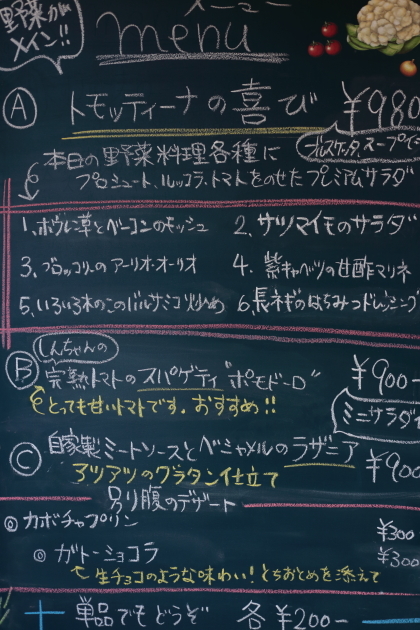 メニュー
野菜が
メイン!!
menu
A トモッティーナの喜び ¥980
ブルスケッタ、スープ
本日の野菜料理各種に
プロシュート、ルッコラ、トマトをのせたプレミアムサラダ
1、ホウレン草とベーコンのキッシュ 2、サツマイモのサラダ
3、ブロッコリーの アーリオ・オーリオ 4、紫キャベツの甘酢マリネ
5、いろいろ木のこのバルサミコ炒め 6、長ネギのはちみつドレッシング
しんちゃんの
B 完熟トマトのスパゲティ"ポモドーロ" ¥900
とっても甘いトマトです。おすすめ!!
ミニサラダ
C 自家製ミートソースとベシャメルのラザニア ¥900
アツアツのグラタン仕立て
別り腹のデザート
◎カボチャプリン ¥300
◎ガトーショコラ ¥300
生チョコのような味わい!とちおとめを添えて
単品でもどうぞ 各¥200-